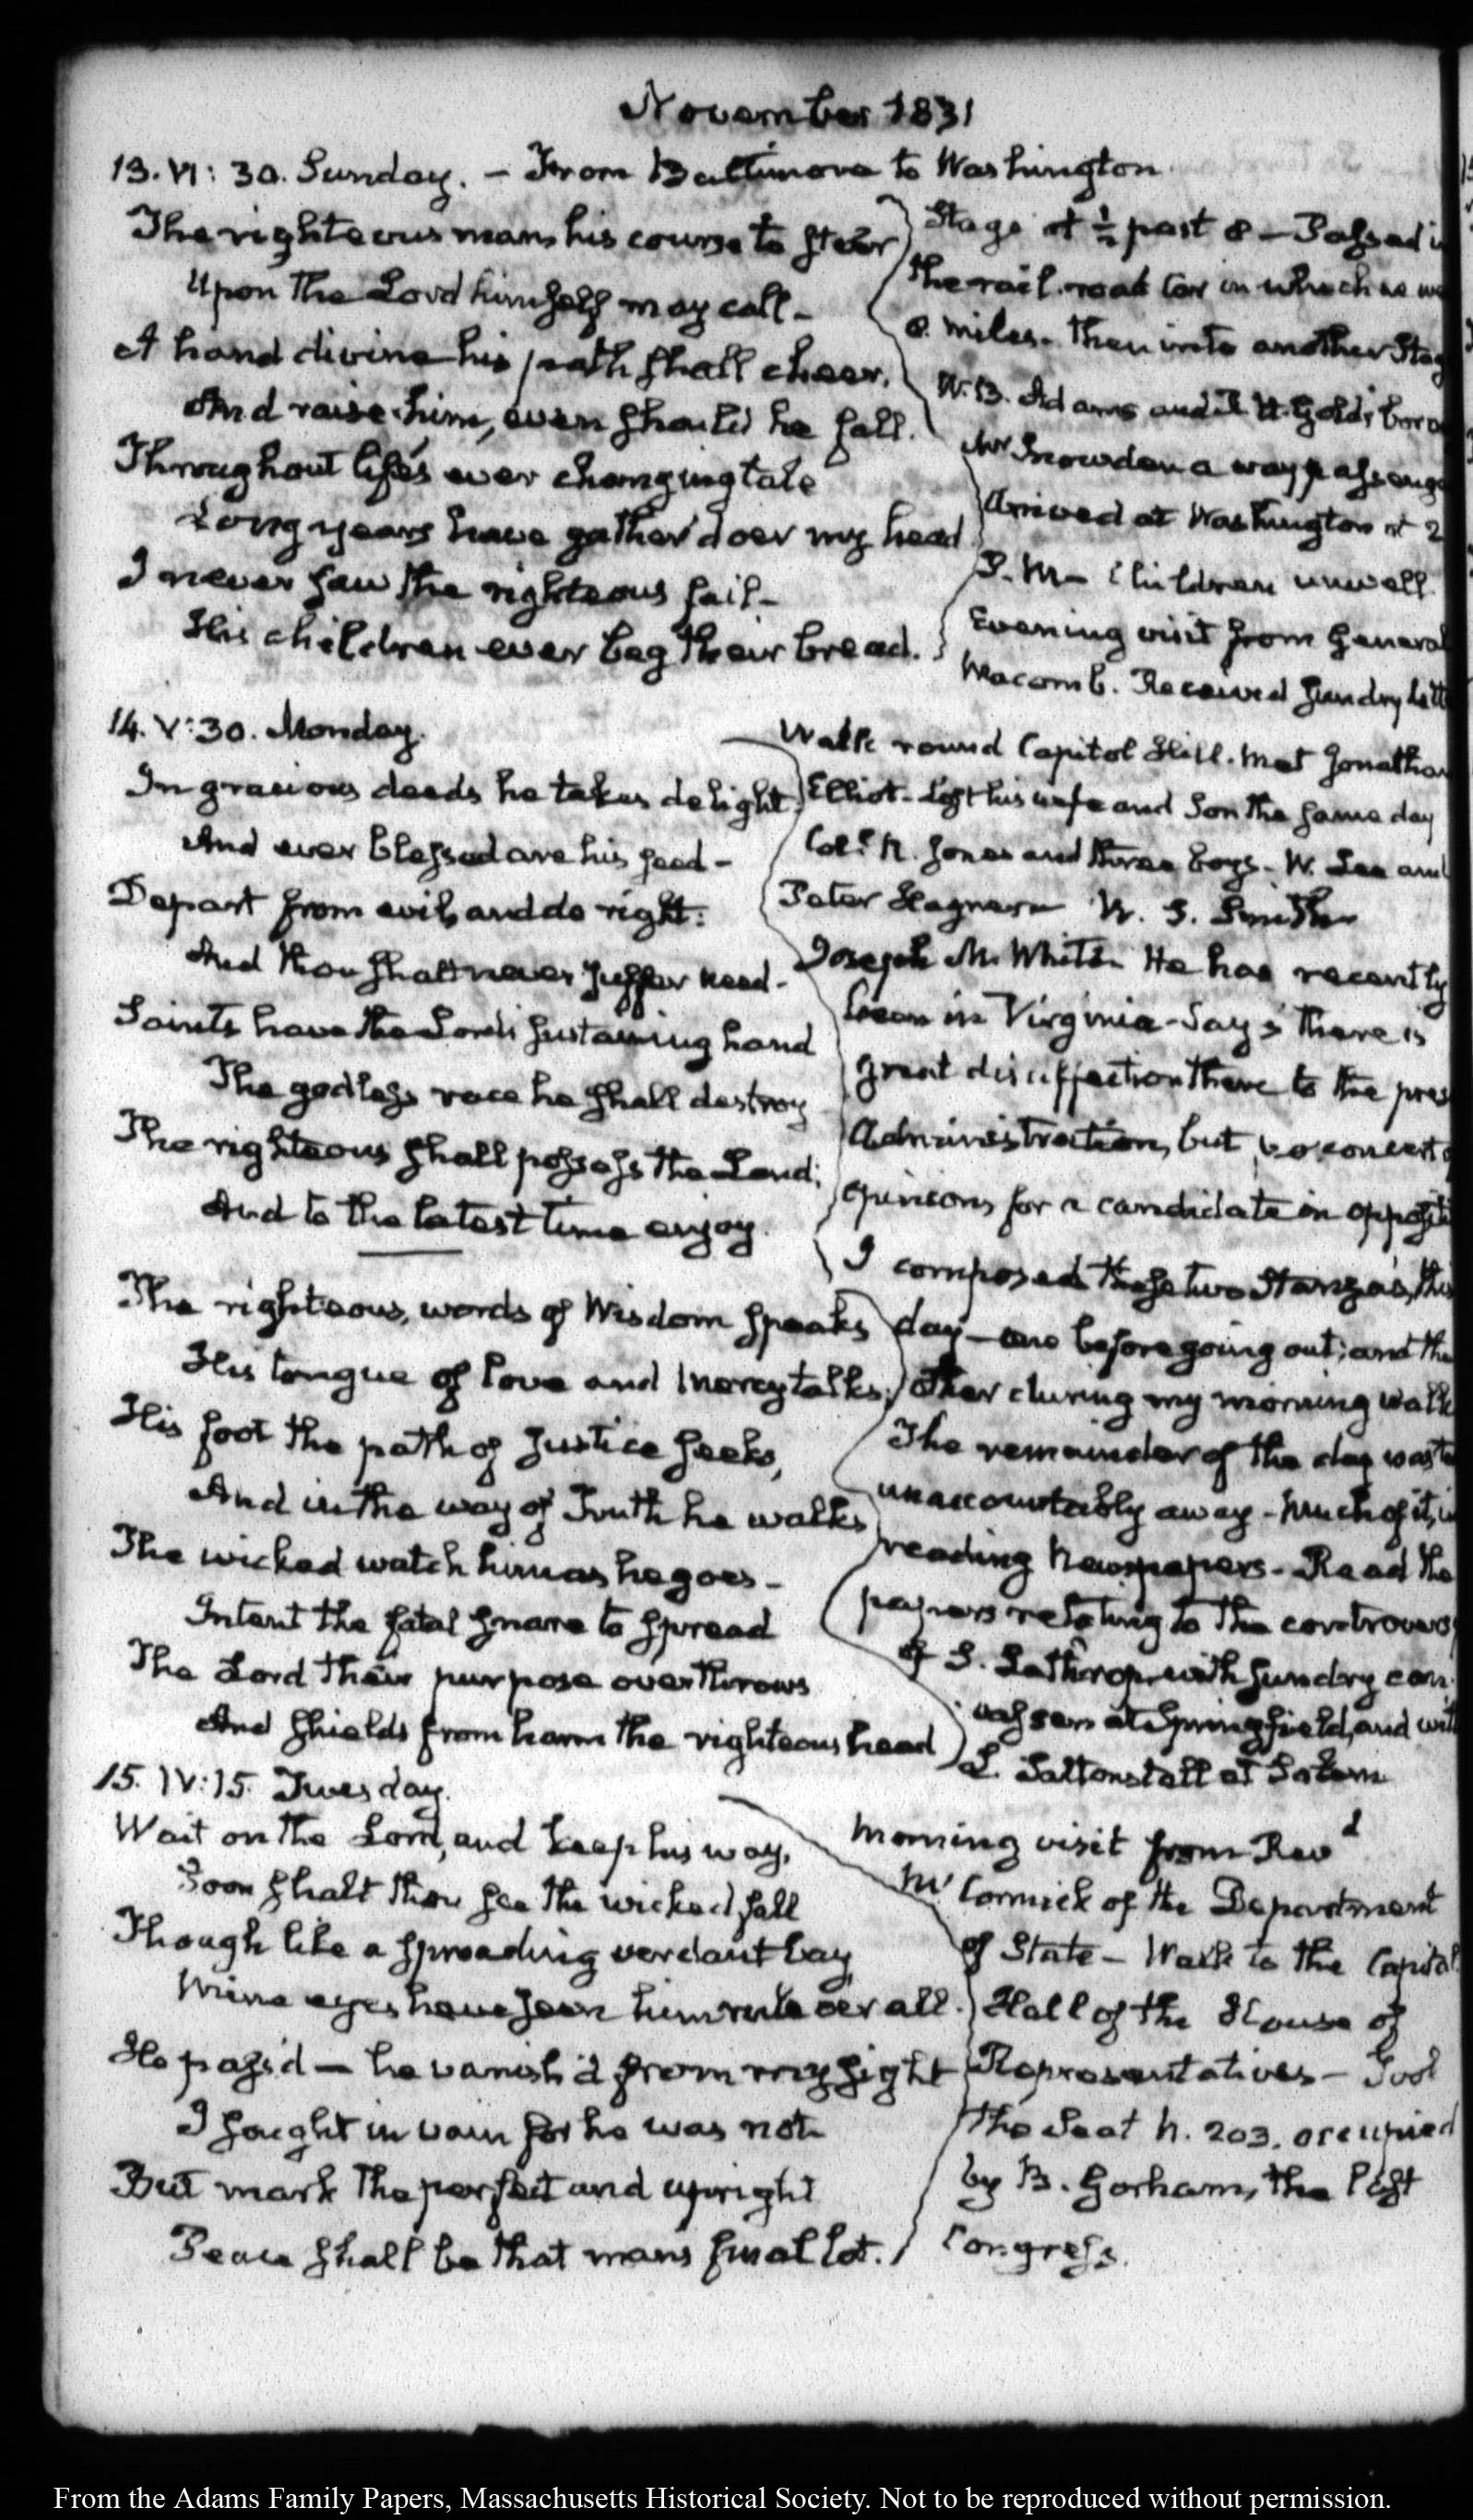 November 1831
13. VI: 30. Sunday. – From Baltimore to Washington
The righteous man, his course to steer
Upon the Lord himself may call –
A hand divine his path shall cheer,
And raise him, even should he fall.
Throughout life's ever changing tale
Long years have gather'd oer my head
I never saw the righteous fail –
His children ever beg their bread.
Stage at ½ past 8 – Passed
the rail-road Car in which
8. miles – then into another Stag
W. B. Adams and
Mr Snowden a way passeng
Arrived at Washington at 2
P.M – Children unwell.
Evening visit from General
Macomb. Received Sundry
14. V: 30. Monday.
In gracious deeds he takes delight,
And ever blessed are his seed –
Depart from evil, and do right:
And thou shalt never suffer need –
Saints have the Lord's sustaining hand
The godless race he shall destroy
The righteous shall possess the Land;
And to the latest time enjoy.
The righteous, words of Wisdom speaks
His tongue of love and mercy talks;
His foot the path of Justice seeks,
And in the way of Truth he walks
The wicked watch him as he goes –
Intent the fatal snare to spread
The Lord their purpose overthrows
And shields from harm the righteous head
Walk round Capitol Hill. Met Jonathan
Elliot – lost his wife and Son the same day
Col. R. Jones and three boys – W. Lee and
Peter Hagner W. S. Smith
Joseph M. White. He has recently
been in Virginia – Says there is
great disaffection there to the pres
Administration, but no concert
opinions for a candidate in
I composed these two Stanzas, this
day – one before going out; and the
other during my morning walk
The remainder of the day
unaccountably away – Much of it, in
reading Newspapers – Read the
papers relating to the controvers
of S. Lathrop with sundry can
vassers at Springfield, and with
L. Saltonstall at Salem
15. IV: 15. Tuesday.
Wait on the Lord, and keep his way,
Soon shalt thou see the wicked fall
Though like a spreading verdant bay
Mine eyes have seen him rule oer all.
He pass'd – he vanish'd from my sight
I sought in vain for he was not
But mark the perfect and upright
Peace shall be that mans final lot.
Morning visit from Revd
Mr Cormick of the Department
of State – Walk to the Capitol
Hall of the House of
Representatives – Took
the Seat N. 203. occupied
by B. Gorham, the last
Congress.
From the Adams Family Papers, Massachusetts Historical Society. Not to be reproduced without permission.